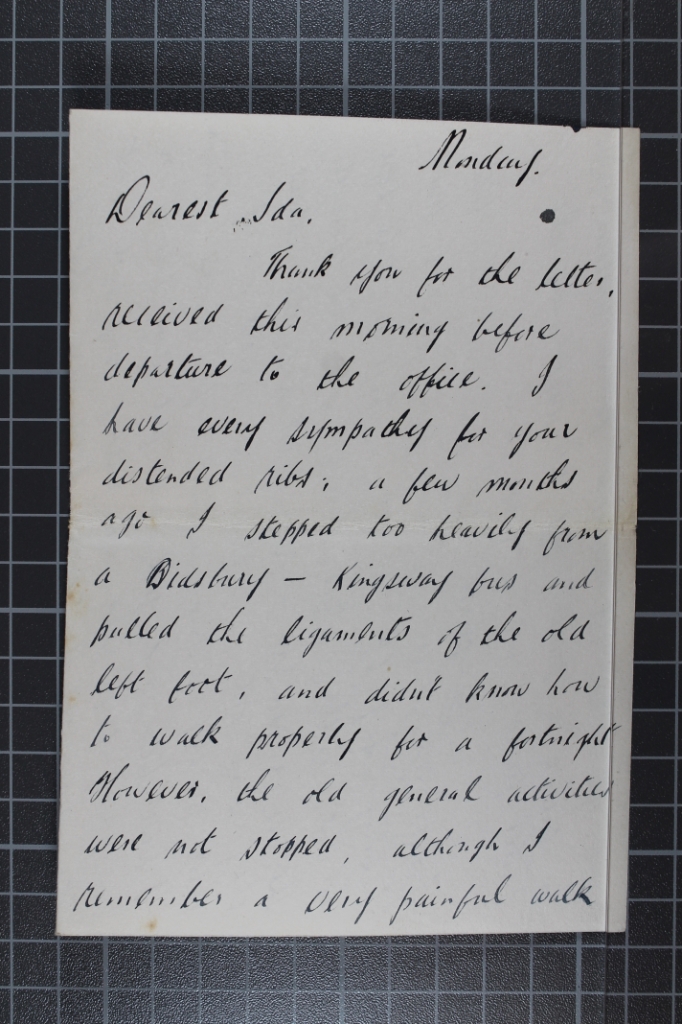 Monday.
Dearest Ida,
Thank you for the letter,
received this morning before
departure to the office. I
have every sympathy for your
distended ribs; a few months
ago I stepped too heavily from
a Didsbury - Kingsway bus and
pulled the ligaments of the old
left foot, and didn't know how
to walk properly for a fortnight
However, the old general activities
were not stopped, although I
remember a very painful walk